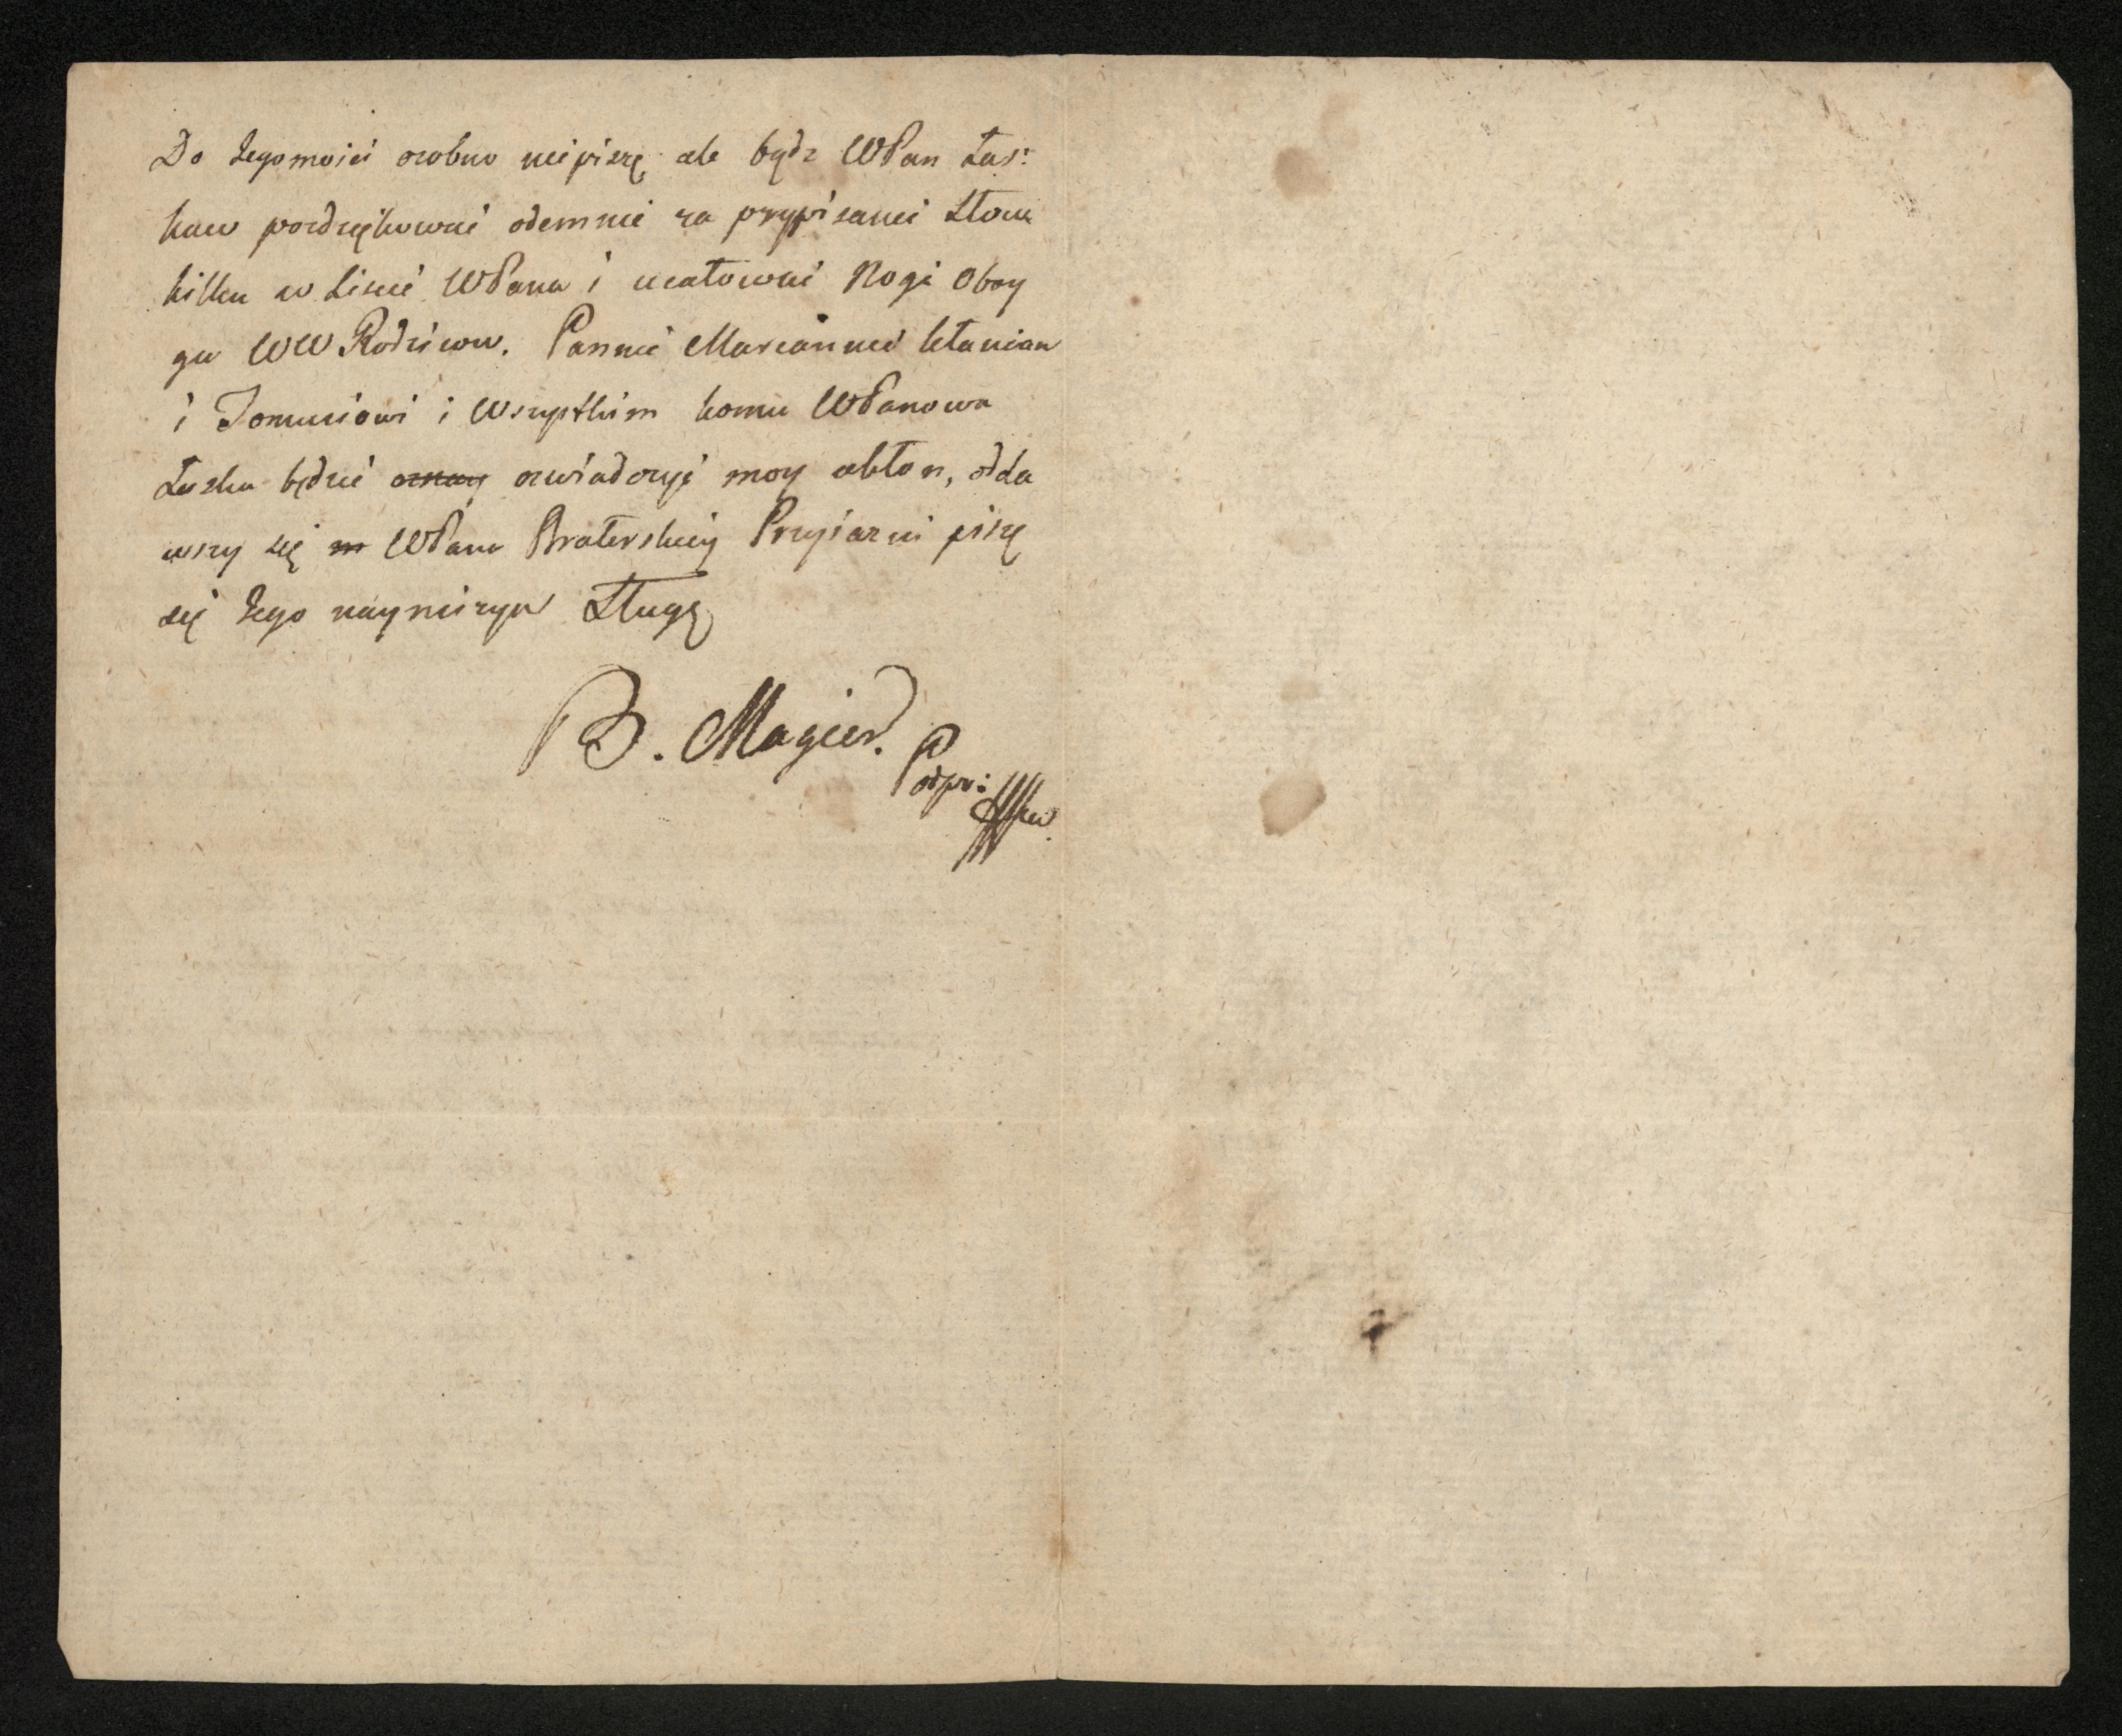 Do Jegomości osobno niepiszę ale bydz WPan Łas:
kaw podziękować odemnie za przypisanei Słow
kilku w Liscie WPana i ucałować Nogi Oboy
ga WW Rodzicow. Pannie Mariannie kłaniam
i Tomusiowi i Wszystkim komu WPanowa
Łaska będzie oswiadczyć moy ukłon, odda
wszy się WPana Braterskiey Przyiazni piszę
się Jego nayniszym Sługą
B. Magier.
Podpr: